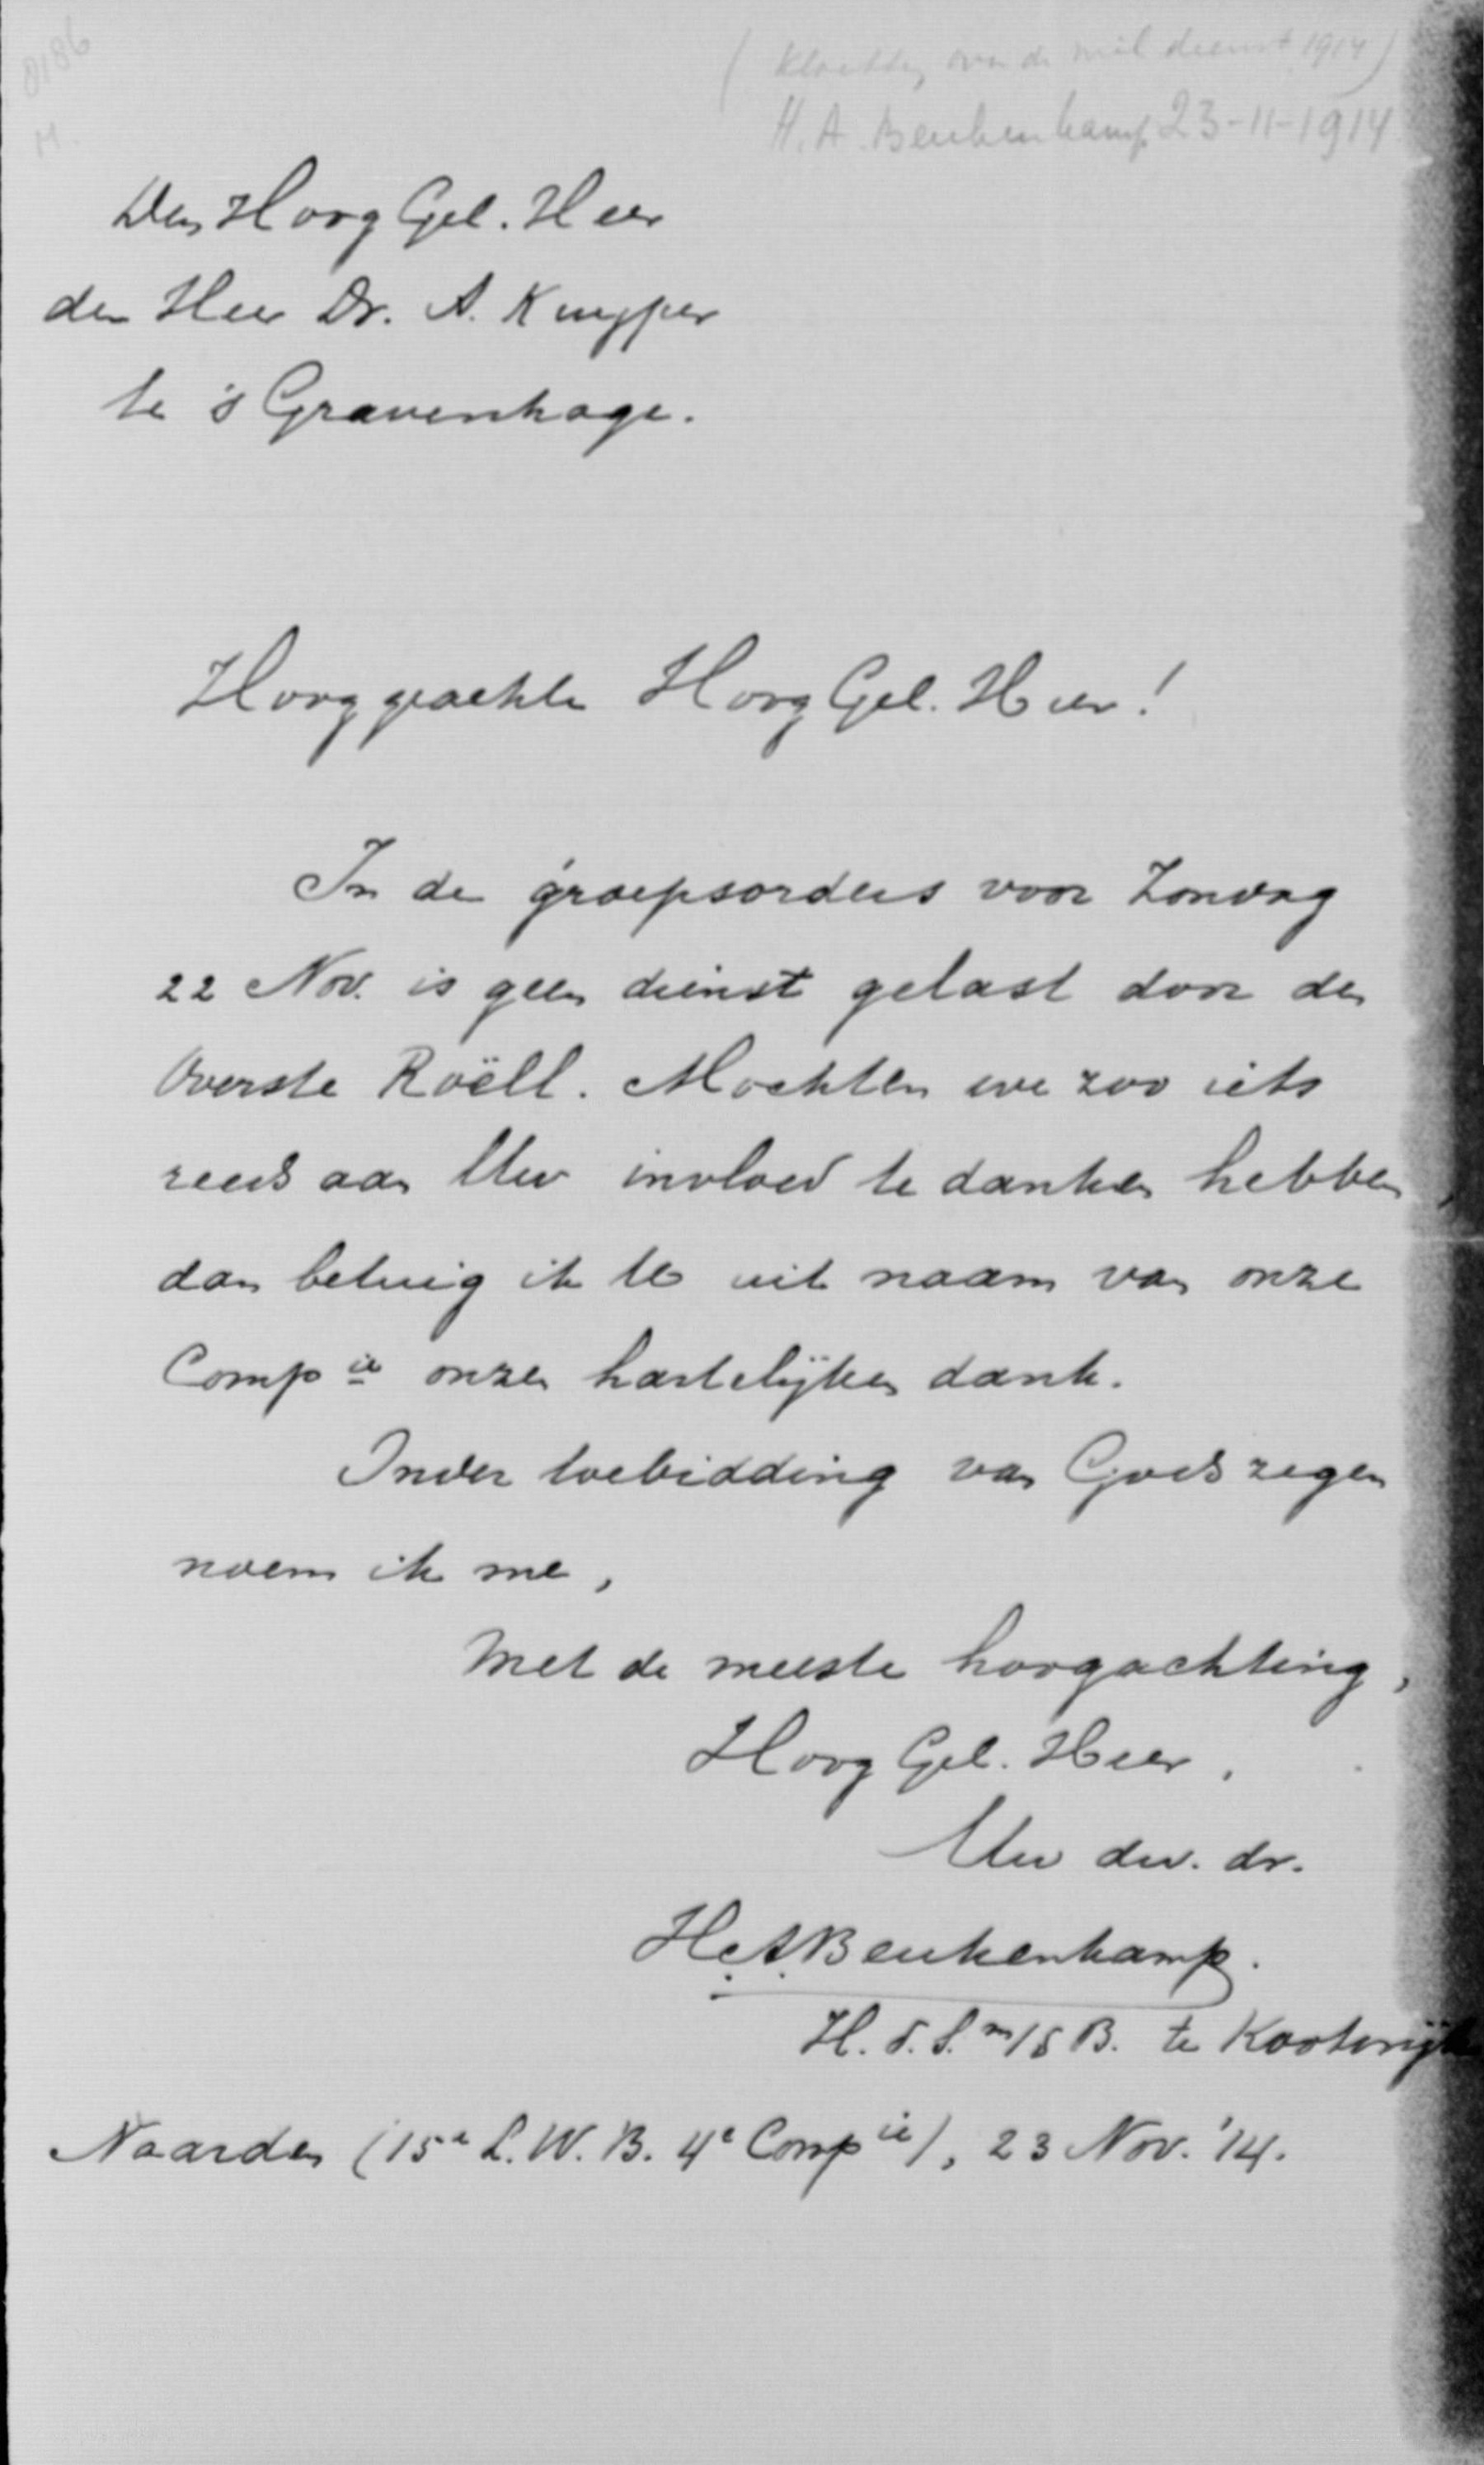 8186
M.
(klachten over de mil dienst 1914)
H. A. Beukenkamp 23-11-1914
Den Hoog Gel. Heer
den Heer Dr. A. Kuyper
te 's Gravenhage.
Hooggeachte Hoog Gel. Heer!
In de groepsorders voor Zondag
22 Nov. is geen dienst gelast door den
Overste Roëll. Mochten we zoo iets
reeds aan Uw invloed te danken hebben,
dan betuig ik U uit naam van onze
Compie onzen hartelijken dank.
Onder toebidding van Gods zegen
noem ik me,
Met de meeste hoogachting,
Hoog Gel. Heer,
Uw dw. dr.
H.A. Beukenkamp.
H. d. S. m/d B. te Kootwijk
Naarden (15e L.W.B. 4e Compie), 23 Nov. '14.